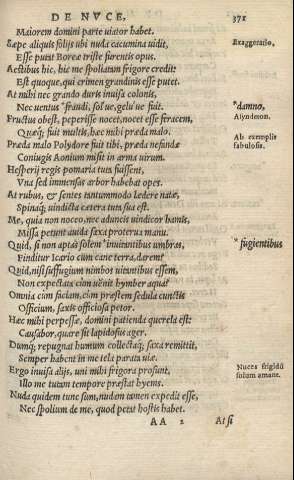 DE NVCE. 371
Maiorem domini parte viator habet.
Sæpe aliquis folijs ubi nuda cacumina uidit, Exaggeratio,
Esse putat Boreæ triste furentis opus.
Aestibus hic, hic me spoliatam frigore credit:
Est quoque, qui crimen grandinis esse putet.
At mihi nec grando duris inuisa colonis,
Nec uentus fraudi, sol ue, gelu'ue fuit. *damno,
Fructus obest, peperisse nocet, nocet esse feracem, Asyndeton.
Quæq; fuit multis, hæc mihi præda malo. Ab exemplis
Præda malo Polydore tuit tibi, præda nefandæ fabulosis.
Coniugis Aonium misit in arma uirum.
Hesperij regis pomaria tuta fuissent,
Vna sed immensas arbor habebat opes.
At rubus, & sentes tantummodo lædere natæ,
Spinaq; uindicta cætera tuta sua est.
Me, quia non noceo, nec aduncis uindicor hamis,
Missa petunt auida saxa proterua manu.
Quid, si non aptas solem* inuitantibus umbras, * fugientibus
Finditur Icario cum cane terra, darem?
Quid, nisi suffugium nimbos uitantibus essem,
Non expectata cùm uenit hymber aqua?
Omnia cùm faciam, cùm præstem sedula cunctis
Officium, saxis officiosa petor.
Hæc mihi perpessæ, domini patienda querela est:
Causabor, quare sit lapidosus ager.
Dumq; repugnat humum collectaq; saxa remittit,
Semper habent in me tela parata uiæ.
Ergo inuisa alijs, uni mihi frigora prosunt, Nuces frigidũ
Illo me tutam tempore præstat hyems. solum amant.
Nuda quidem tunc sum, nudam tamen expedit esse,
Nec spolium de me, quod petat hostis habet.
AA 2 At si